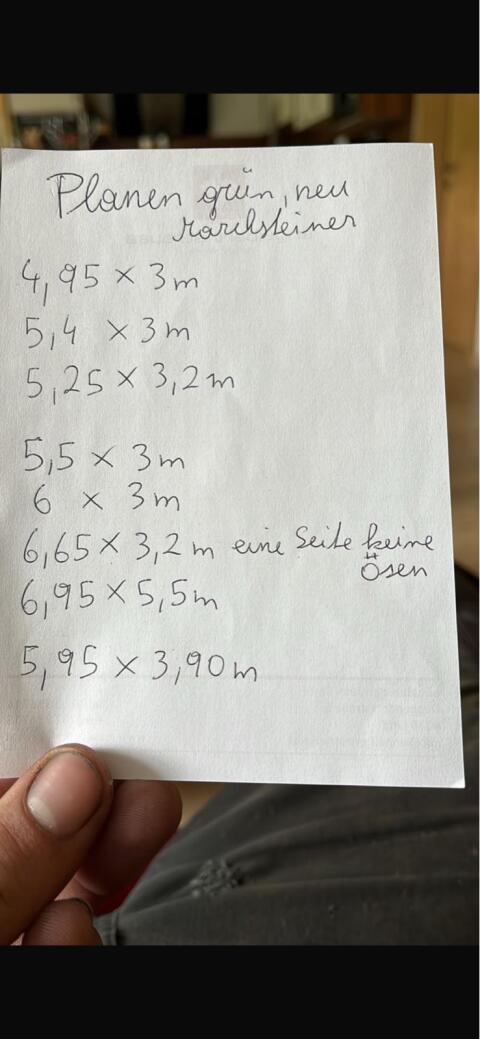 Planen grün, neu
Marchsteiner
4,95 × 3m
5,4 × 3m
5,25 × 3,2m
5,5 × 3m
6 × 3m
6,65 × 3,2m eine Seite keine
Ösen
6,95 × 5,5m
5,95 × 3,90m